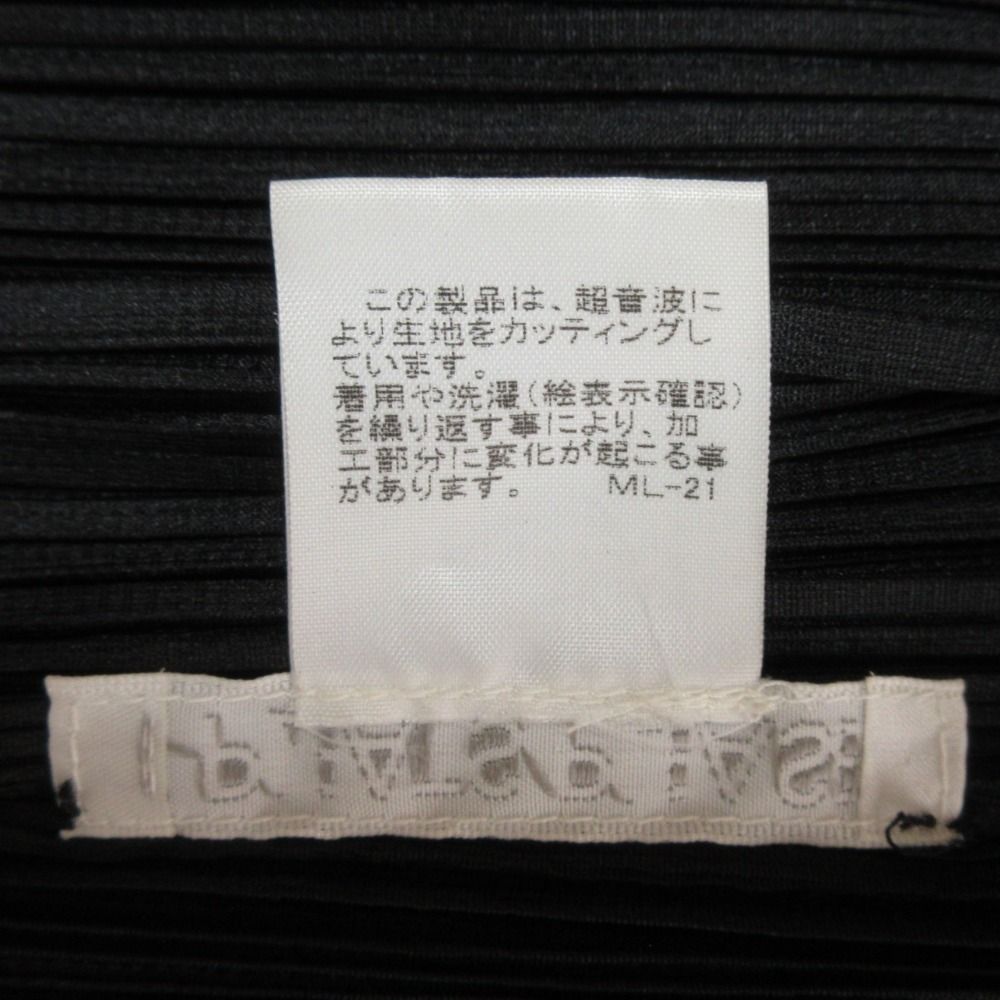 この製品は、超音波に
より生地をカッティングし
ています。
着用や洗濯(絵表示確認)
を繰り返す事により、加
工部分に変化が起こる事
があります。 ML-21